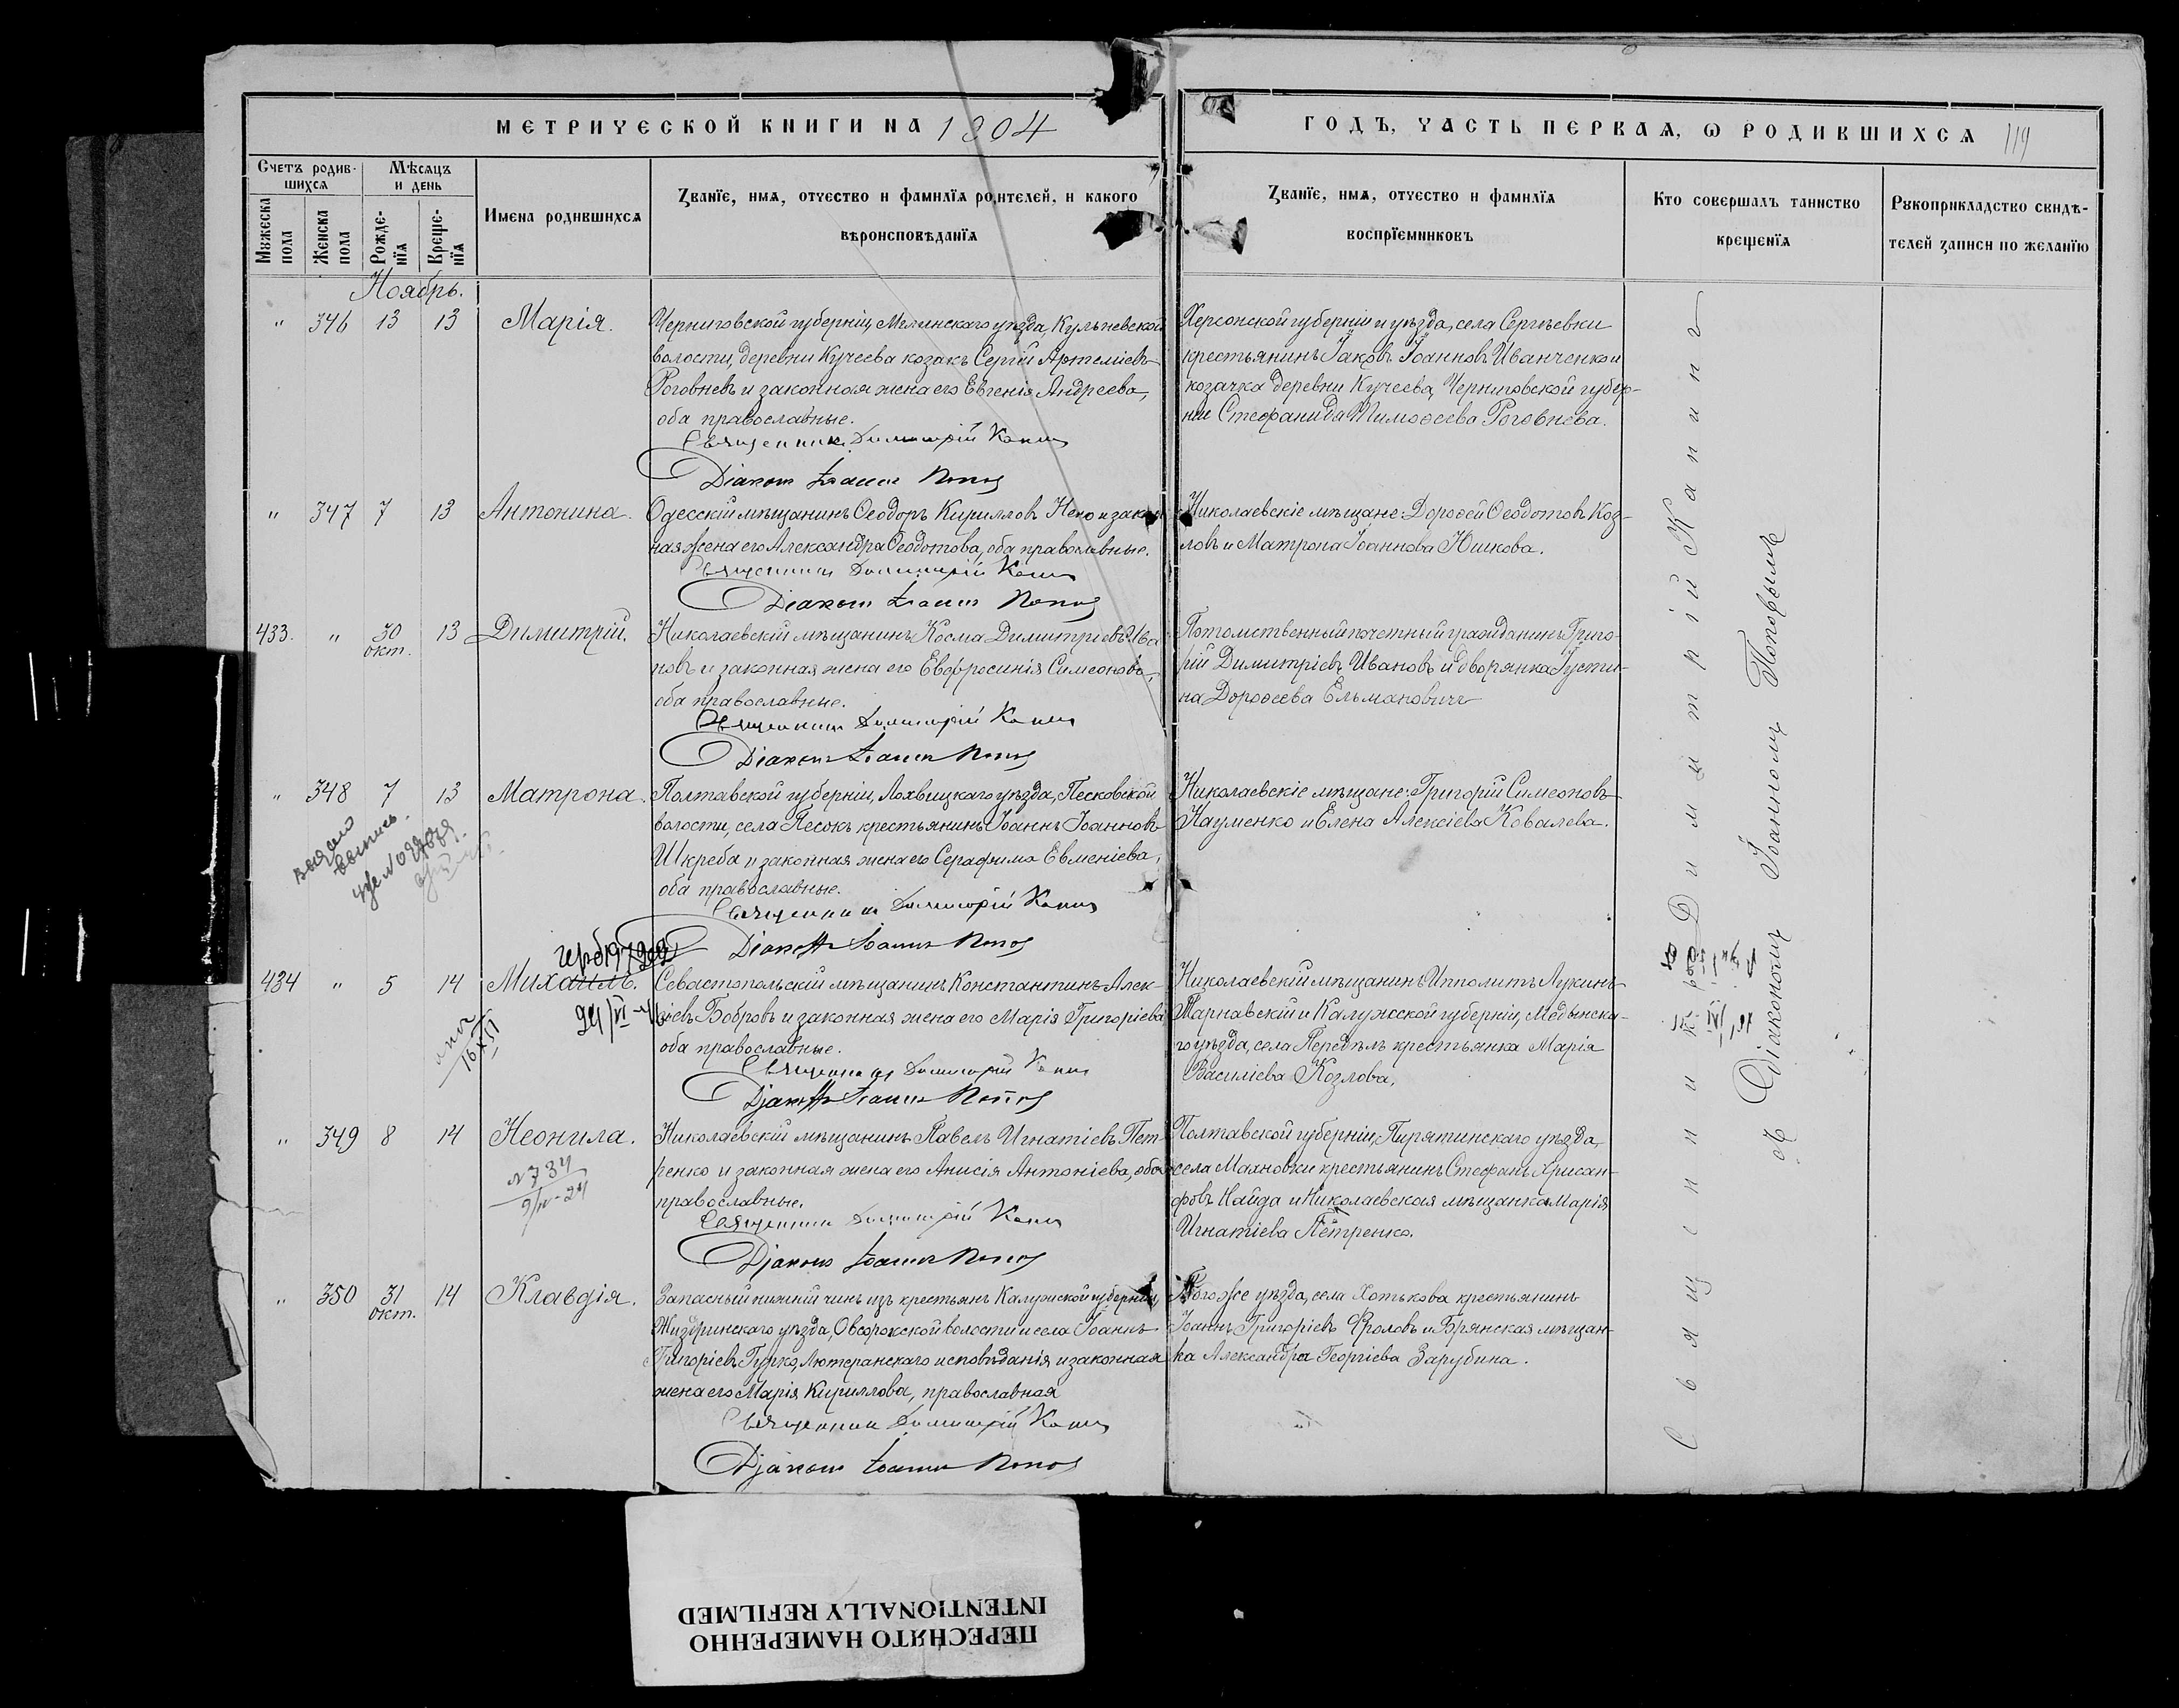 МЕТРИЧЕСКОЙ КНИГИ НА 1904
ГОДЪ, ЧАСТЬ ПЕРВАЯ, Ѡ РОДИВШИХСЯ 119
Счетъ родив-
шихся
Мѣсяцъ
и день
Мужеска
пола
Женска
пола
Рожде-
нїя
Креще-
нїя
Имена родившихся
Званїе, имя, отчество и фамилїя родителей, и какого
вѣроисповѣданїя
Званїе, имя, отчество и фамилїя
воспрїемниковъ
Кто совершалъ таинство
крещенїя
Рукоприкладство свидѣ-
телей записи по желанїю
Ноябрь.
" 346 13 13 Марія.
Черниговской губерніи, Мглинскаго уѣзда, Кульневской
волости, деревни Кучеева козакъ Сергій Артеміевъ
Роговневъ и законная жена его Евгенія Андреева,
оба православные.
Священникъ Димитрій
Діаконъ Іоаннъ
Херсонской губерніи и уѣзда, села Сергѣевки
крестьянинъ Іаковъ Іоанновъ Иванченко и
козачка деревни Кучеева, Черниговской губер-
ніи Стефанида Тимоѳеева Роговнева.
" 347 7 13 Антонина.
Одесскій мѣщанинъ Ѳеодоръ Кирилловъ и закон
ная жена его Александра Ѳеодотова, оба православные.
Священникъ Димитрій
Діаконъ Іоаннъ
Николаевскіе мѣщане: Дороѳей Ѳеодотовъ Коз-
ловъ и Матрона Іоаннова Юшкова.
433. " 30 13 Димитрій.
окт.
Николаевскій мѣщанинъ Косма Димитріевъ Ива
новъ и законная жена его Евфросинія Симеонова,
оба православные.
Священникъ Димитрій
Діаконъ Іоаннъ
Потомственный почетный гражданинъ Григо-
рій Димитріевъ Ивановъ и дворянка Іусти-
на Дороѳеева Ельмановичъ
" 348 7 13 Матрона.
Полтавской губерніи, Лохвицкаго уѣзда, Песковской
волости, села Песокъ крестьянинъ Іоаннъ Іоанновъ
Шкреба и законная жена его Серафима Евменіева,
оба православные.
Священникъ Димитрій
Діаконъ Іоаннъ
Николаевскіе мѣщане: Григорій Симеоновъ
Науменко и Елена Алексіева Ковалева.
434 " 5 14 Михаилъ.
Севастопольскій мѣщанинъ Константинъ Алек-
сіевъ Бобровъ и законная жена его Марія Григоріева
оба православные.
Священникъ Димитрій
Діаконъ Іоаннъ
Николаевскій мѣщанинъ Ипполитъ Лукинъ
Тарнавскій и Калужской губерніи, Медынска-
го уѣзда, села Передѣлъ крестьянка Марія
Василіева Козлова.
" 349 8 14 Неонила.
N 734
9/IV-24
Николаевскій мѣщанинъ Павелъ Игнатіевъ Пет-
ренко и законная жена его Анисія Антоніева, оба
православные.
Священникъ Димитрій
Діаконъ Іоаннъ
Полтавской губерніи, Пирятинскаго уѣзда,
села Махновки крестьянинъ Стефанъ Хрисан-
фовъ Найда и Николаевская мѣщанка Марія
Игнатіева Петренко.
" 350 31 14 Клавдія.
окт.
Запасный нижній чинъ изъ крестьянъ Калужской губерніи,
Жиздринскаго уѣзда, Овсорокской волости и села Іоаннъ
Григоріевъ Гурко, Лютеранскаго исповѣданія и законная
жена его Марія Кириллова, православная
Священникъ Димитрій
Діаконъ Іоаннъ
Того же уѣзда, села Хотькова крестьянинъ
Іоаннъ Григоріевъ Фроловъ и Брянская мѣщан-
ка Александра Георгіева Зарубина.
Священникъ Димитрій
съ Діакономъ Іоанномъ
ПЕРЕСНЯТО НАМЕРЕННО
INTENTIONALLY REFILMED